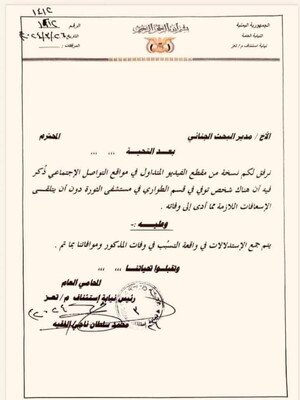 ١٤١٢
الجمهورية اليمنية
النيابة العامة
نيابة استئناف م / تعز
بسم الله الرحمن الرحيم
الرقم
التاريخ
المرفقات
الأخ / مدير البحث الجنائي المحترم
بعد التحية ,,, ,,,
نرفق لكم نسخة من مقطع الفيديو المتداول في مواقع التواصل الاجتماعي ذُكر
فيه أن هناك شخص توفي في قسم الطوارئ في مستشفى الثورة دون أن يتلقى
الإسعافات اللازمة مما أدى إلى وفاته .
وعليـــه :-
يتم جمع الإستدلالات في واقعة التسبُب في وفات المذكور وموافاتنا بما تم .
وتقبلوا تحياتنـا ,,, ,,,
المحامي العام
رئيس نيابة إستئناف م/ تعز
محمد سلطان ناجي الفقيه